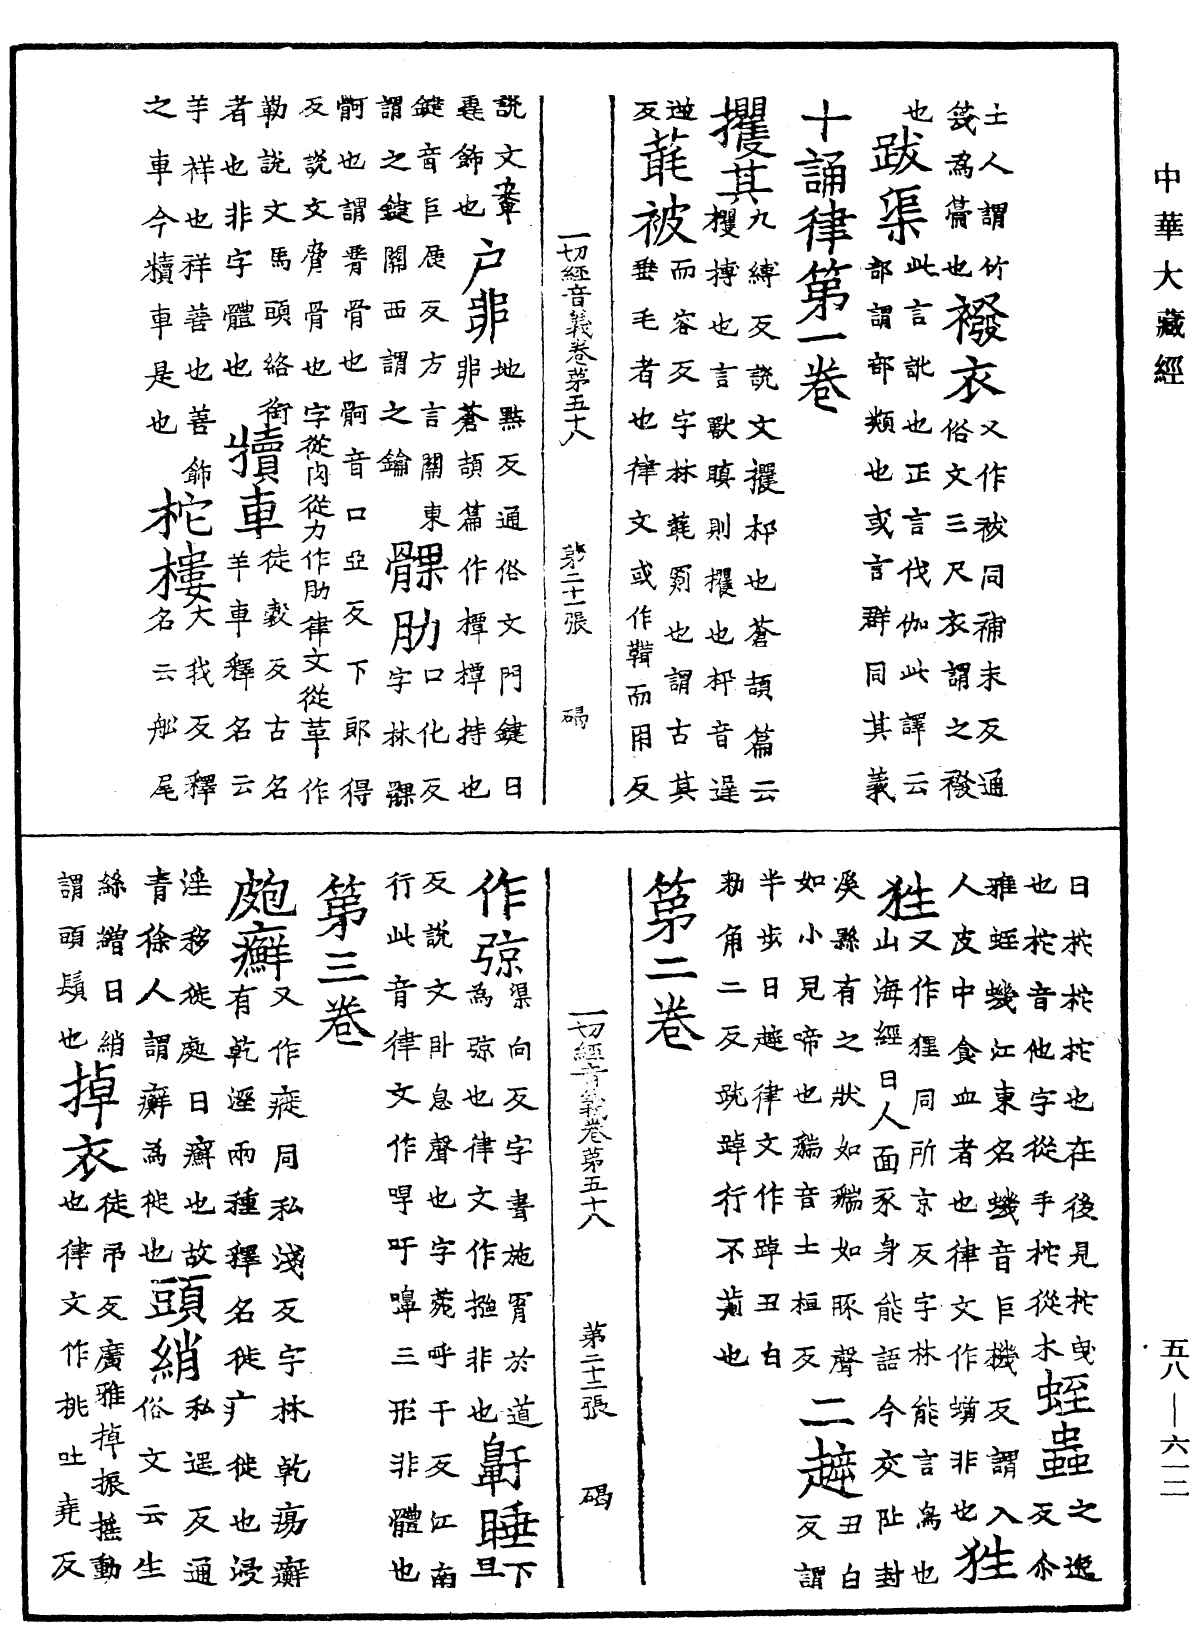 中華大藏經
士人謂竹
筏為䉬也
撥衣
又作袚同補末反通
俗文三尺衣謂之襏
也
跋渠
此言訛也正言伐伽此譯云
部謂部類也或言群同其義
十誦律第一卷
攫其
九縛反説文攫㧙也蒼頡篇云
攫搏也言獸瞋則攫也㧙音逞
遊
反
毦被
而容反字林毦罽也謂古其
垂毛者也律文或作鞲而用反
一切經音義卷第五十八　第二十一張　碣
説文
㡓飾也
户排
地點反通俗文門鍵曰
排蒼頡篇作撢撢持也
鍵音巨展反方言關東
謂之鍵關西謂之鑰
髁肋
口化反
字林髁
䯊也謂䯗骨也䯊音口亞反下郎得
反説文脅骨也字從肉從力作肋律文從革作
勒説文馬頭絡銜
者也非字體也
犢車
徒榖反古名
羊車釋名云
羊祥也祥善也善飾
之車今犢車是也
柁樓
大我反釋
名云船尾
曰柁柁拕也在後見柁曳
也拕音他字從手柁從木
蛭蟲
之逸
反尒
雅蛭蟣江東名蟣音巨機反謂入
人皮中食血者也律文作螏非也
狌
狌
又作猩同所京反字林能言鳥也
山海經曰人面豕身能語今交阯封
溪縣有之狀如貒如豚聲
如小兒啼也貒音士桓反
二趠
丑白
反謂
半步曰趠律文作踔丑白
勑角二反䟽踔行不前也
第二卷
一切經音義卷第五十八　第二十二張　碣
作弶
渠向反字書施罥於道
為弶也律文作摾非也
鼾睡
下
旦
反説文卧息聲也字苑呼干反江南
行此音律文作哻吁嘷三形非體也
第三卷
皰癬
又作㾌同私淺反字林乾瘍癬
有乾溼兩種釋名徙疒徙也浸
淫移徙處日癬也故
青徐人謂癬為徙也
頭綃
私遥反通
俗文云生
絲繒曰綃
謂頭鬚也
掉衣
徒吊反廣雅掉振揺動
也律文作桃吐堯反
五八—六一二